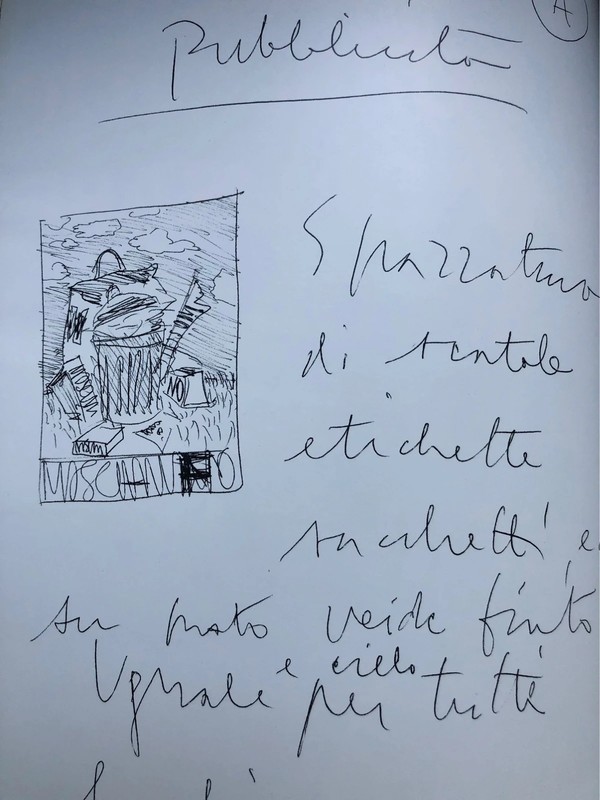 A
Pubblicità
Spazzatura
di scatole
etichette
sacchetti e
MOSCHINO
NO
su prato verde finto
e cielo
Uguale per tutti